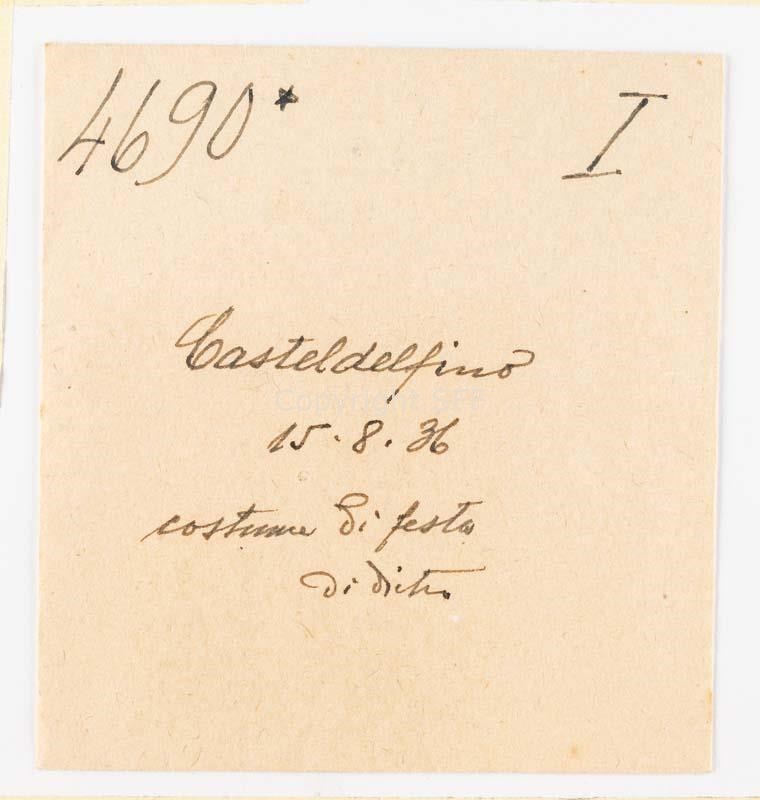 4690* I
Casteldelfino
15.8.36
costume di festa
di dietro